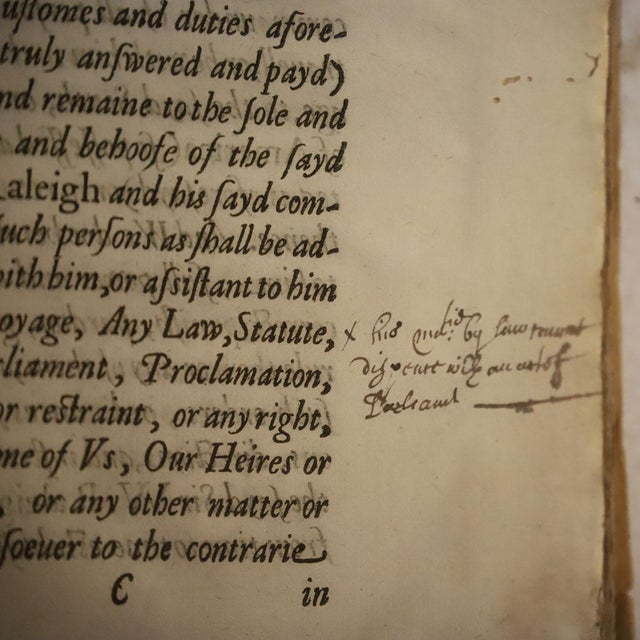 uſtomes and duties afore-
truly anſwered and payd)
nd remaine to the ſole and
and behooſe of the ſayd
aleigh and his ſayd com-
ſuch perſons as ſhall be ad-
with him, or aſsiſtant to him
oyage, Any Law, Statute,
rliament, Proclamation,
or reſtraint, or any right,
me of Vs, Our Heires or
, or any other matter or
ſoeuer to the contrarie
C in
x his matie by law cannot
dispence with an act of
Parliamt